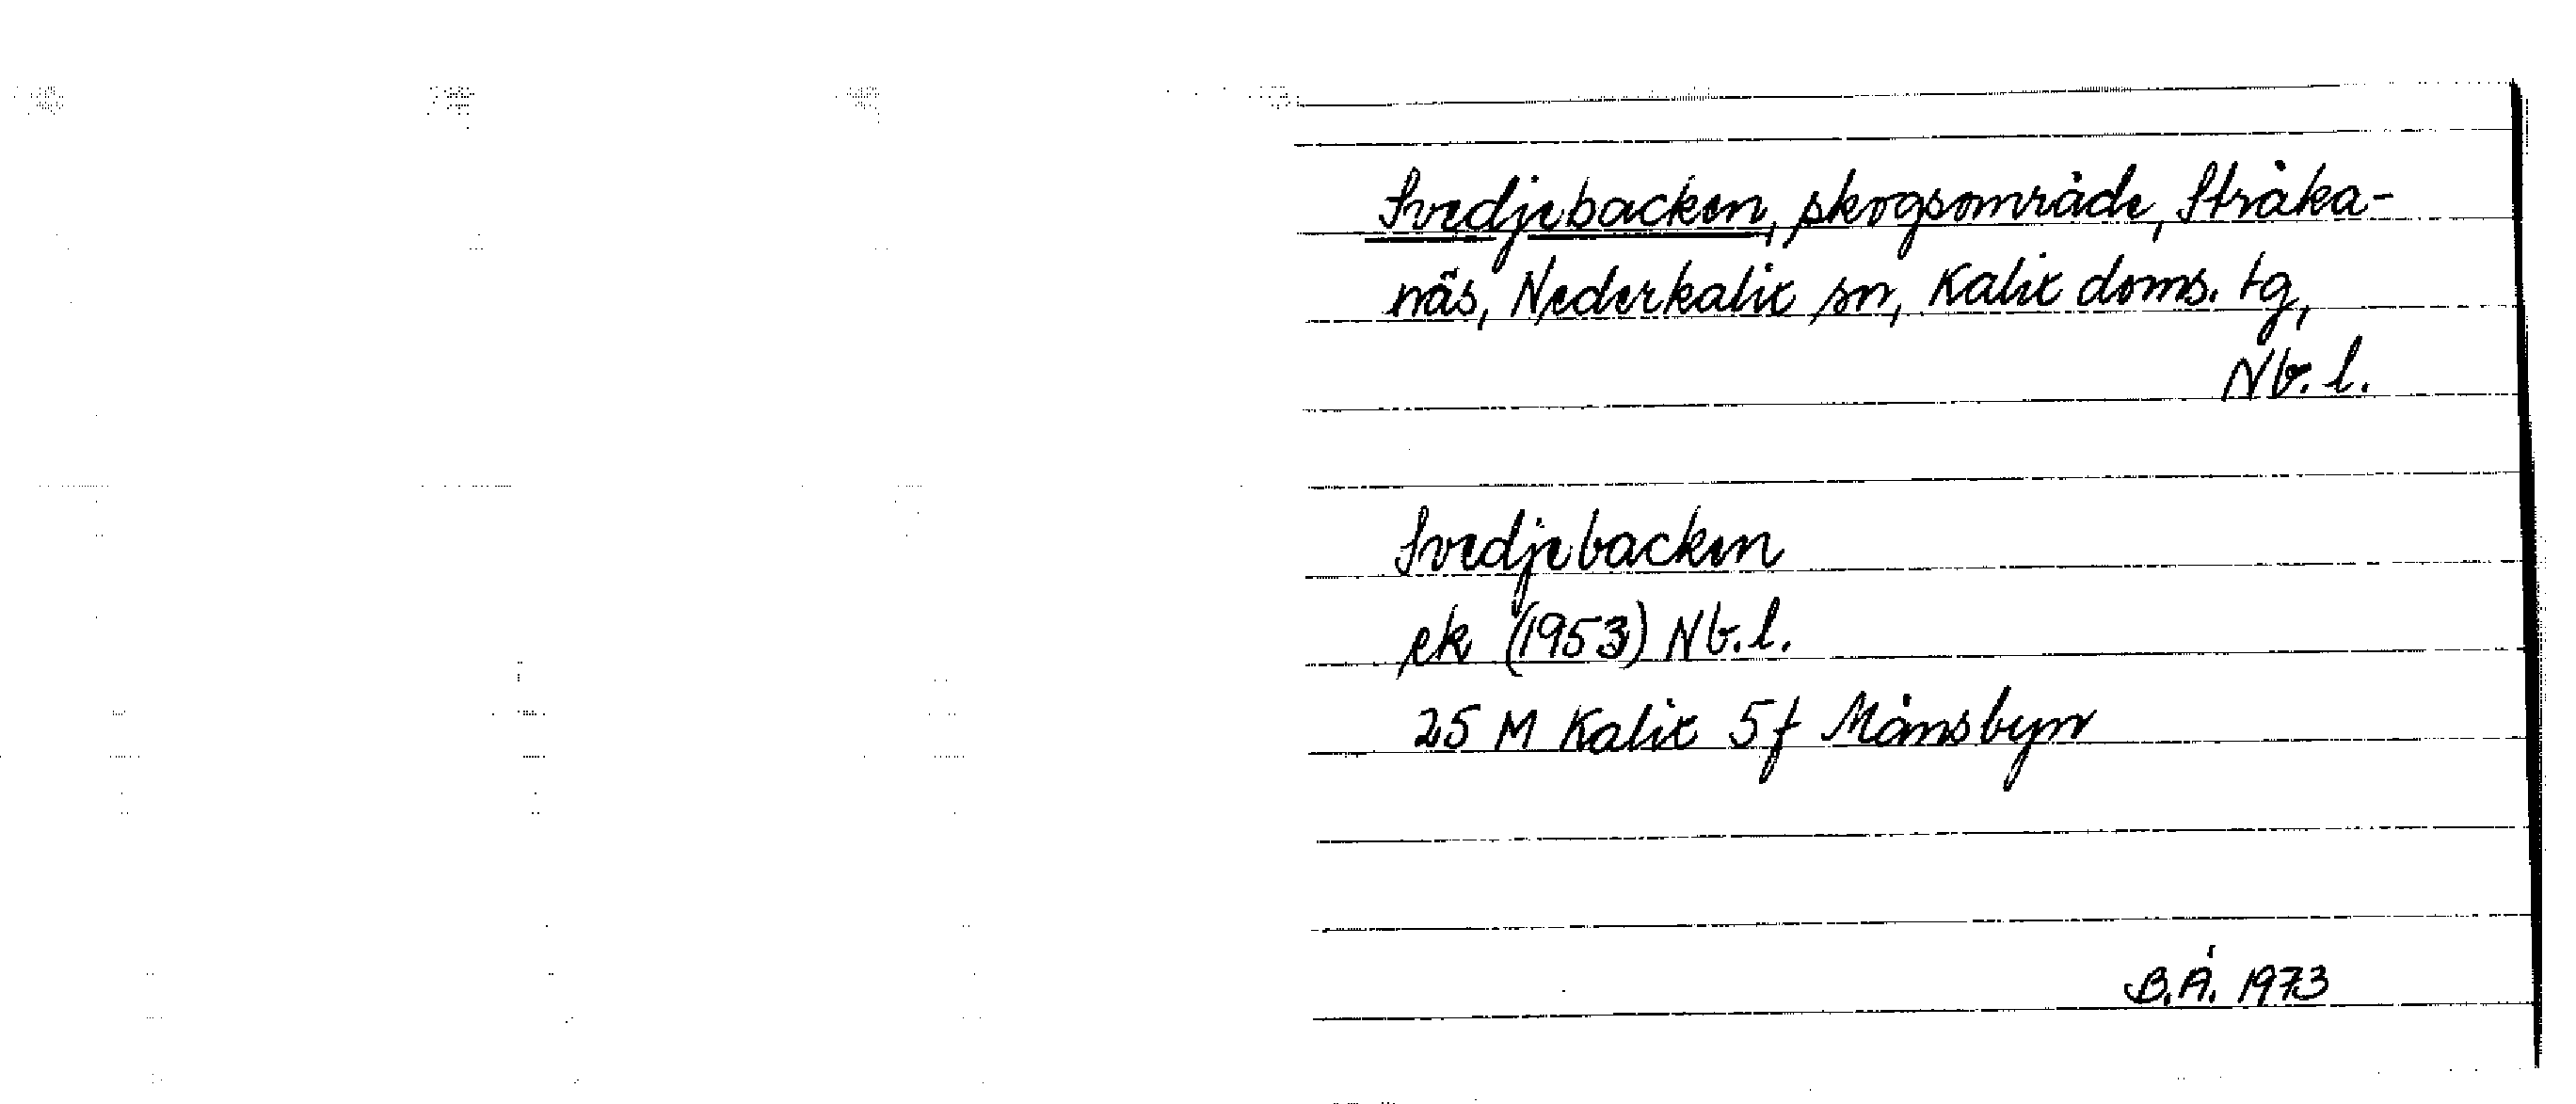 Svedjebacken, skogsområde, Stråka-
näs, Nederkalix sn, Kalix doms. tg,
Nb. l.
Svedjebacken
ek (1953) Nb. l.
25 M Kalix 5f Månsbyn
B.Å. 1973